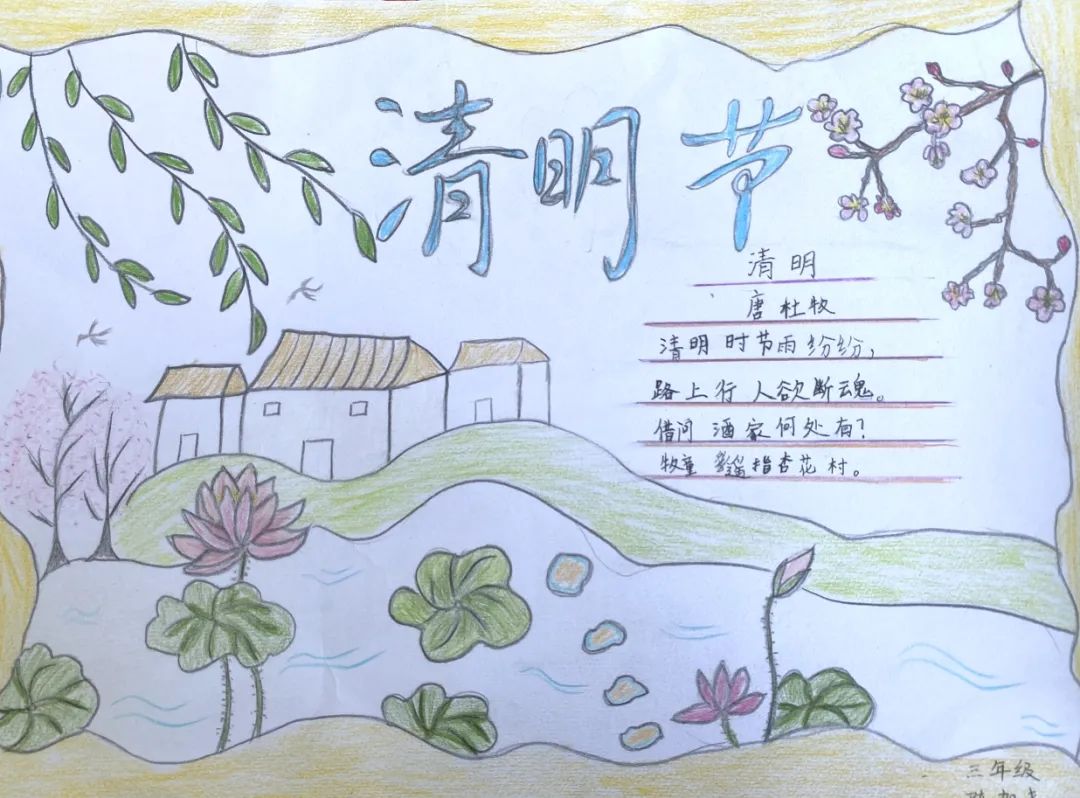 清明节
清明
唐杜牧
清明时节雨纷纷，
路上行人欲断魂。
借问酒家何处有？
牧童遥指杏花村。
三年级